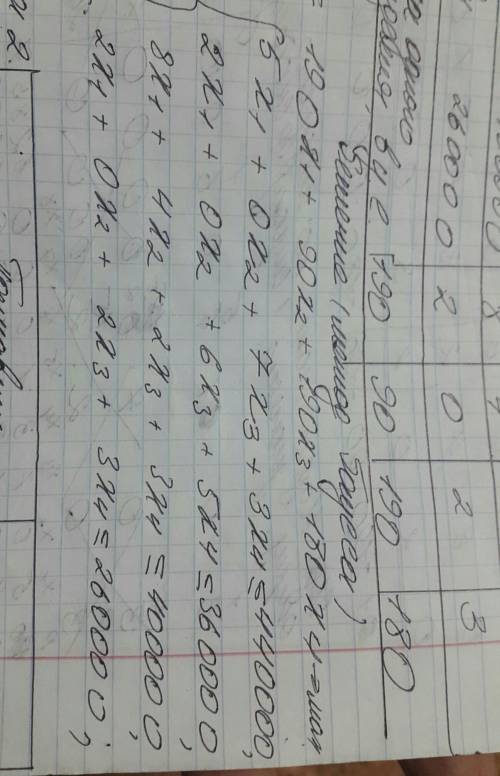 260000 2 0 2 3
190 90 190 180
Решение (метод Гаусса)
= 190x1 + 90x2 + 190x3 + 180x4 → max
5x1 + 0x2 + 7x3 + 3x4 ≤ 440000,
2x1 + 0x2 + 6x3 + 5x4 ≤ 360000,
8x1 + 4x2 + 2x3 + 3x4 ≤ 400000,
2x1 + 0x2 + 2x3 + 3x4 ≤ 260000;
2.